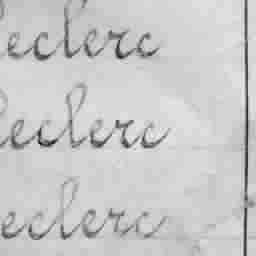 Leclerc
Leclerc
Leclerc